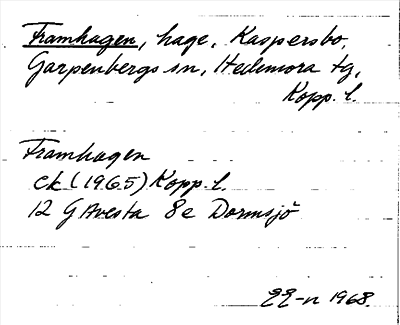 Framhagen, hage, Kaspersbo,
Garpenbergs sn, Hedemora tg,
Kopp. l.
Framhagen
ek (1965) Kopp. l.
12 G Avesta 8e Dormsjö
EE-n 1968.